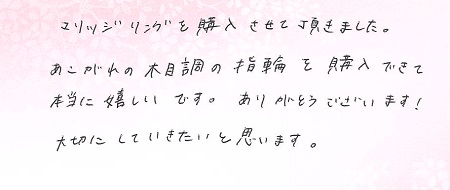 マリッジリングを購入させて頂きました。
あこがれの木目調の指輪を購入できて
本当に嬉しいです。ありがとうございます!
大切にしていきたいと思います。